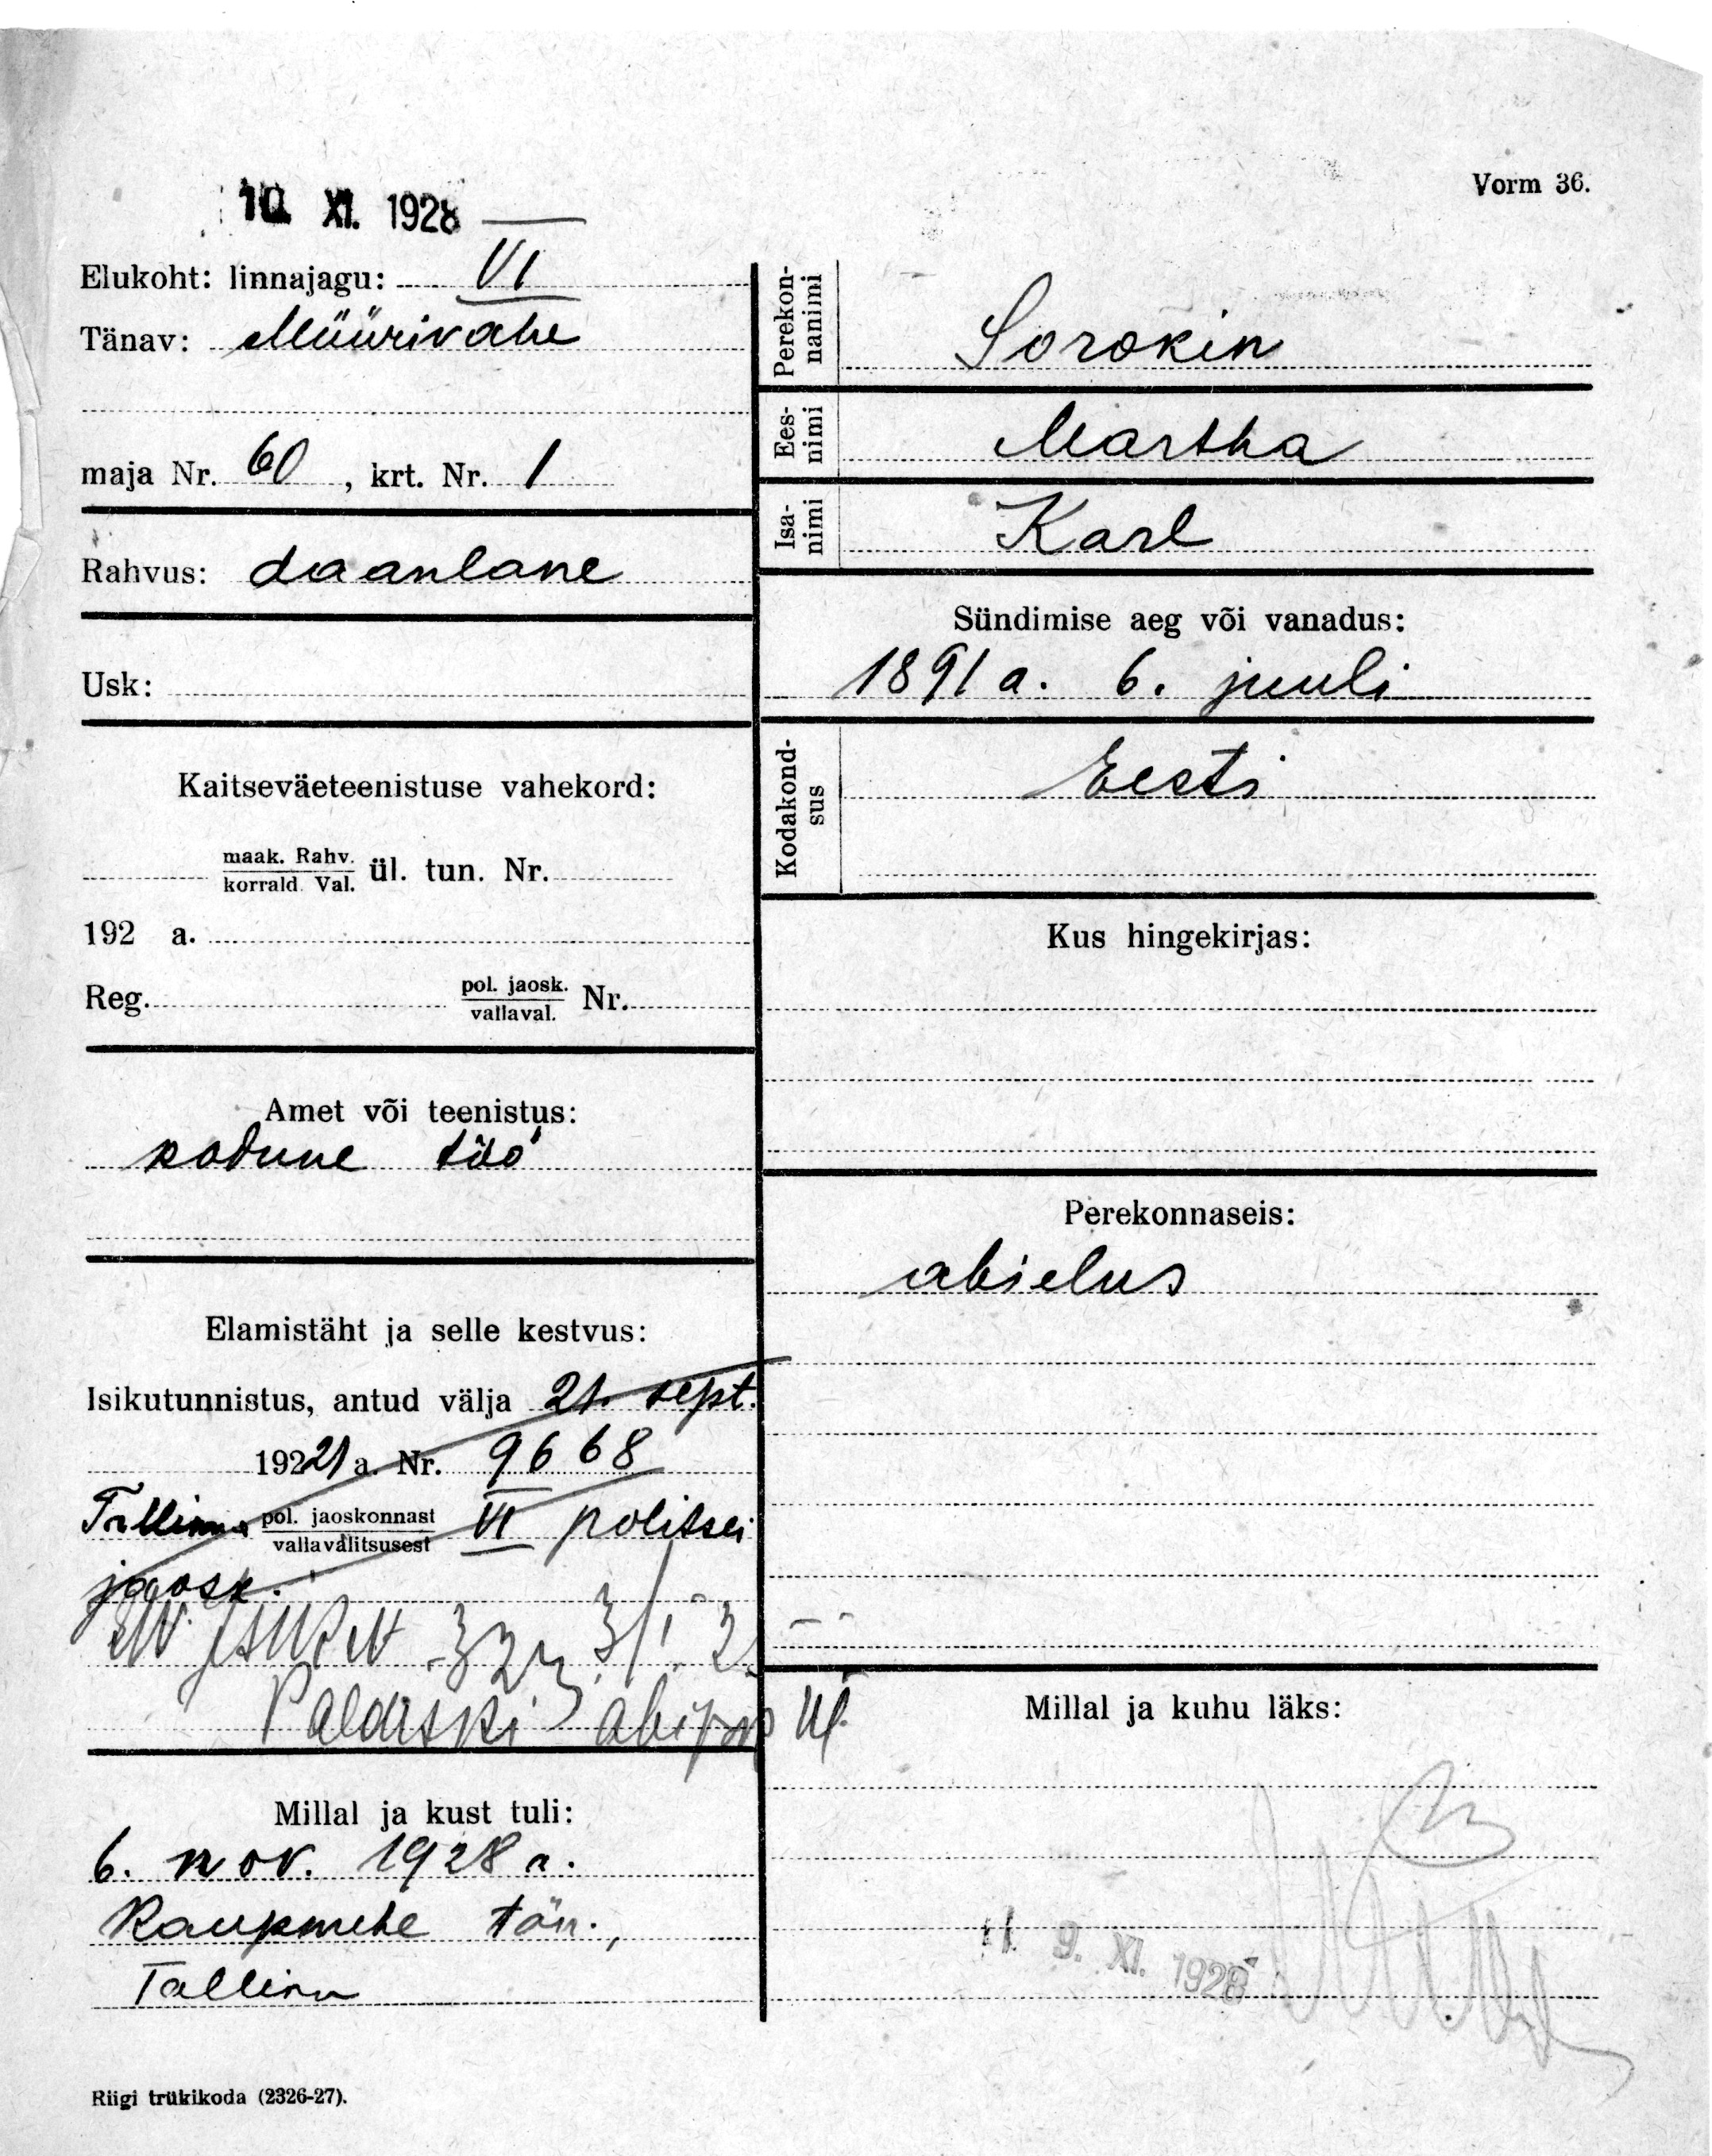 10. XI. 1928
Vorm 36.
Elukoht: linnajagu: VI
Tänav: Müürivahe
maja Nr. 60, krt. Nr. 1
Rahvus: daanlane
Usk:
Kaitseväeteenistuse vahekord:
maak. Rahv.
korrald. Val.
ül. tun. Nr.
192 a.
Reg. pol. jaosk. Nr.
vallaval.
Amet või teenistus:
kodune töö
Elamistäht ja selle kestvus:
Isikutunnistus, antud välja 21. sept.
19221 a. Nr. 9668
Tallinna pol. jaoskonnast VI politsei
vallavalitsusest
jaosk.
Paldiski
Millal ja kust tuli:
6. nov. 1928 a.
Kaupmehe tän.,
Tallinn
Riigi trükikoda (2326-27).
Perekon-
nanimi
Sorokin
Ees-
nimi
Martha
Isa-
nimi
Karl
Sündimise aeg või vanadus:
1891 a. 6. juuli
Kodakond-
sus
Eesti
Kus hingekirjas:
Perekonnaseis:
abielus
Millal ja kuhu läks:
9. XI. 1928